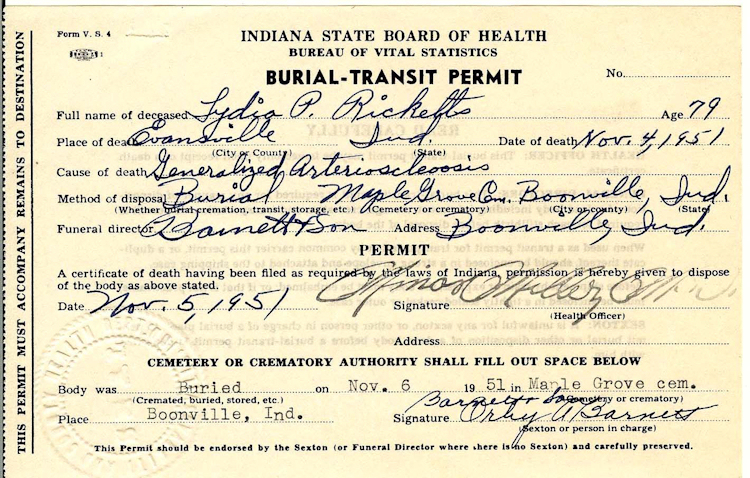 Form V. S. 4
INDIANA STATE BOARD OF HEALTH
BUREAU OF VITAL STATISTICS
BURIAL-TRANSIT PERMIT
No.
Full name of deceased Lydia P. Ricketts Age 79
Place of death Evansville Ind. Date of death Nov. 4, 1951
(City or County) (State)
Cause of death Generalized Arteriosclerosis
Method of disposal Burial Maple Grove Cem. Boonville, Ind.
(Whether burial, cremation, transit, storage, etc.) (Cemetery or crematory) (City or county) (State)
Funeral director Barnett & Son Address Boonville, Ind.
PERMIT
A certificate of death having been filed as required by the laws of Indiana, permission is hereby given to dispose
of the body as above stated.
Date Nov. 5, 1951 Signature
(Health Officer)
Address
CEMETERY OR CREMATORY AUTHORITY SHALL FILL OUT SPACE BELOW
Body was Buried on Nov. 6 1951 in Maple Grove cem.
(Cremated, buried, stored, etc.) (Cemetery or crematory)
Barnett & Son
Place Boonville, Ind. Signature Orby A Barnett
(Sexton or person in charge)
This Permit should be endorsed by the Sexton (or Funeral Director where there is no Sexton) and carefully preserved.
THIS PERMIT MUST ACCOMPANY REMAINS TO DESTINATION